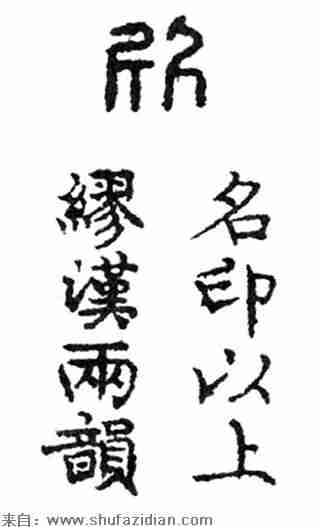 名印以上
繆漢兩韻
来自：www.shufazidian.com